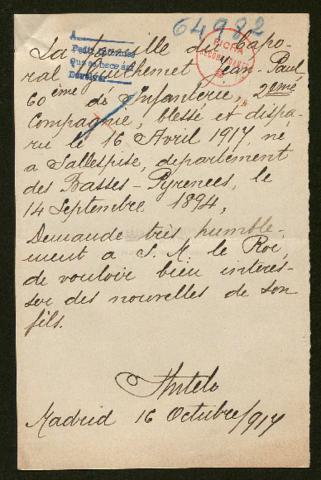 64982
A
La famille du Capo-
ral Jean-Paul,
60ème d'Infanterie, 2ème
Compagnie, blessé et dispa-
ru le 16 Avril 1917, né
à Sallespise, département
des Basses-Pyrenees, le
14 Septembre 1894,
Demande très humble-
ment a S. M. le Roi,
de vouloir bien interes-
ser des nouvelles de son
fils.
Madrid 16 Octubre/917